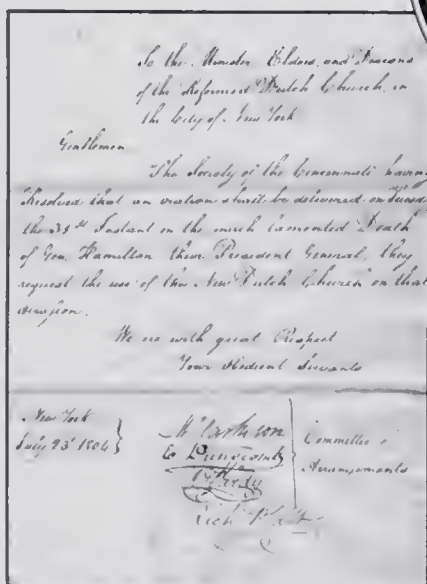 To the Minister Elders, and Deacons
of the Reformed Dutch Church, in
the City of New York
Gentlemen
The Society of the Cincinnati having
Resolved that an oration shall be delivered on
the 31st Instant on the much lamented Death
of Gen. Hamilton their President General, they
request the use of the New Dutch Church on that
occasion.
We are with great Respect
Your Obedient Servants
New York
July 23d 1804
Committee of
Arrangements